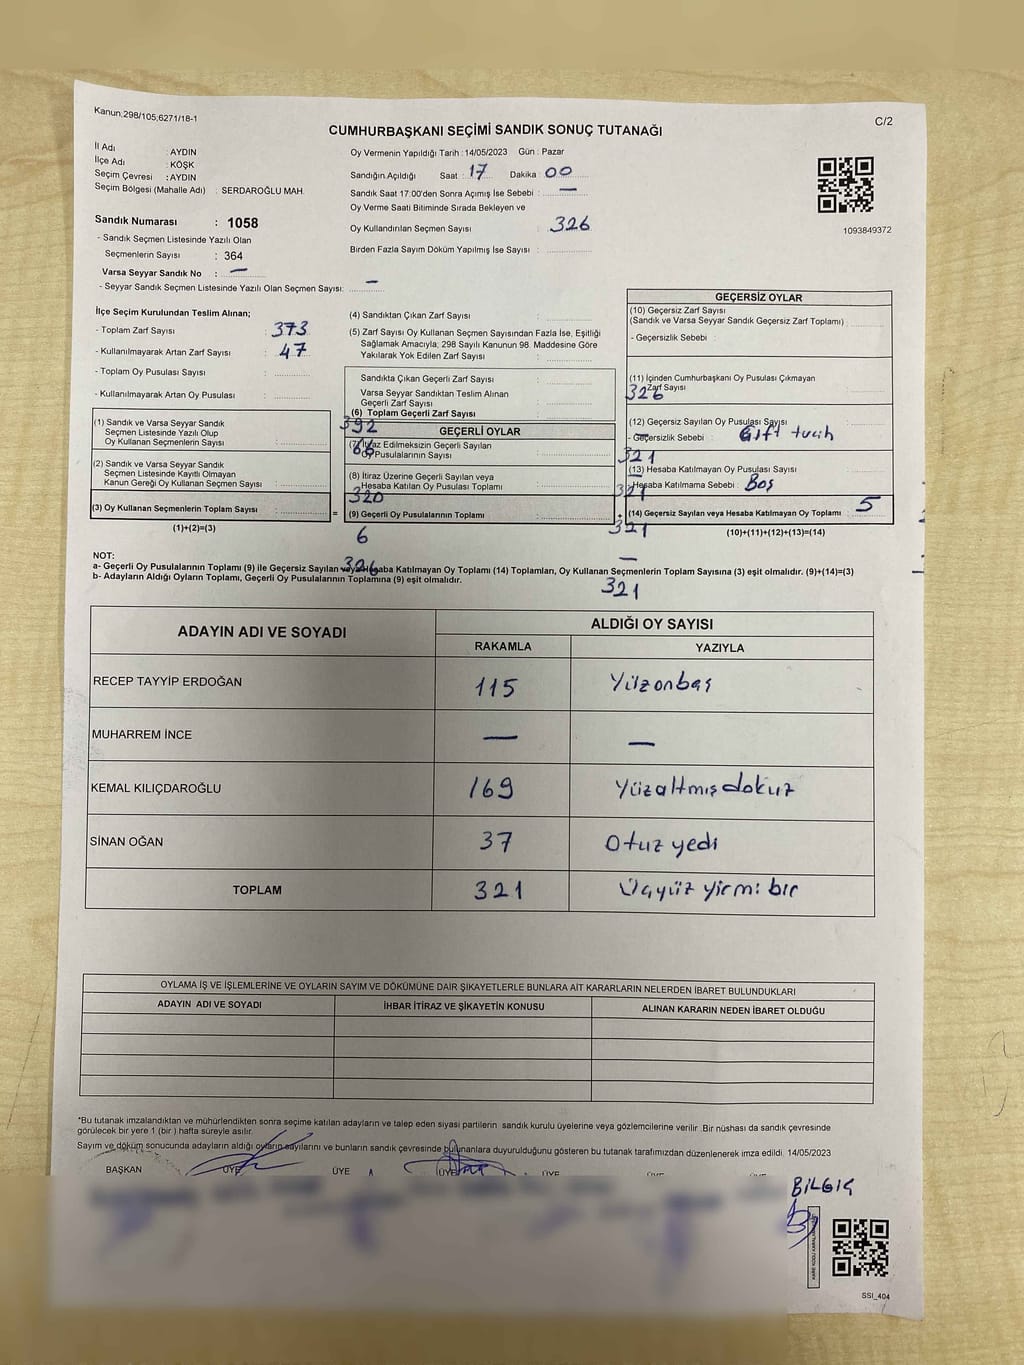 Kanun;298/105;6271/18-1
C/2
CUMHURBAŞKANI SEÇİMİ SANDIK SONUÇ TUTANAĞI
İl Adı : AYDIN
İlçe Adı : KÖŞK
Seçim Çevresi : AYDIN
Seçim Bölgesi (Mahalle Adı) : SERDAROĞLU MAH.
Sandık Numarası : 1058
- Sandık Seçmen Listesinde Yazılı Olan
Seçmenlerin Sayısı : 364
Varsa Seyyar Sandık No : —
- Seyyar Sandık Seçmen Listesinde Yazılı Olan Seçmen Sayısı: —
Oy Vermenin Yapıldığı Tarih : 14/05/2023 Gün : Pazar
Sandığın Açıldığı Saat : 17 Dakika : 00
Sandık Saat 17.00'den Sonra Açımış İse Sebebi : —
Oy Verme Saati Bitiminde Sırada Bekleyen ve
Oy Kullandırılan Seçmen Sayısı : 326
Birden Fazla Sayım Döküm Yapılmış İse Sayısı :
1093849372
İlçe Seçim Kurulundan Teslim Alınan;
- Toplam Zarf Sayısı : 373
- Kullanılmayarak Artan Zarf Sayısı : 47
- Toplam Oy Pusulası Sayısı :
- Kullanılmayarak Artan Oy Pusulası :
(1) Sandık ve Varsa Seyyar Sandık
Seçmen Listesinde Yazılı Olup
Oy Kullanan Seçmenlerin Sayısı :
(2) Sandık ve Varsa Seyyar Sandık
Seçmen Listesinde Kayıtlı Olmayan
Kanun Gereği Oy Kullanan Seçmen Sayısı :
(3) Oy Kullanan Seçmenlerin Toplam Sayısı :
(1)+(2)=(3)
=
(4) Sandıktan Çıkan Zarf Sayısı :
(5) Zarf Sayısı Oy Kullanan Seçmen Sayısından Fazla İse, Eşitliği
Sağlamak Amacıyla; 298 Sayılı Kanunun 98. Maddesine Göre
Yakılarak Yok Edilen Zarf Sayısı :
Sandıkta Çıkan Geçerli Zarf Sayısı :
Varsa Seyyar Sandıktan Teslim Alınan
Geçerli Zarf Sayısı :
(6) Toplam Geçerli Zarf Sayısı :
392
GEÇERLİ OYLAR
66
(7) İtiraz Edilmeksizin Geçerli Sayılan
Oy Pusulalarının Sayısı :
(8) İtiraz Üzerine Geçerli Sayılan veya
Hesaba Katılan Oy Pusulası Toplamı :
320
(9) Geçerli Oy Pusulalarının Toplamı :
6
326
+
GEÇERSİZ OYLAR
(10) Geçersiz Zarf Sayısı
(Sandık ve Varsa Seyyar Sandık Geçersiz Zarf Toplamı) :
- Geçersizlik Sebebi :
(11) İçinden Cumhurbaşkanı Oy Pusulası Çıkmayan
Zarf Sayısı
326
(12) Geçersiz Sayılan Oy Pusulası Sayısı
- Geçersizlik Sebebi : Çift tercih
321
(13) Hesaba Katılmayan Oy Pusulası Sayısı :
- Hesaba Katılmama Sebebi : Boş
321
(14) Geçersiz Sayılan veya Hesaba Katılmayan Oy Toplamı : 5
321
(10)+(11)+(12)+(13)=(14)
—
321
NOT:
a- Geçerli Oy Pusulalarının Toplamı (9) ile Geçersiz Sayılan veya Hesaba Katılmayan Oy Toplamı (14) Toplamları, Oy Kullanan Seçmenlerin Toplam Sayısına (3) eşit olmalıdır. (9)+(14)=(3)
b- Adayların Aldığı Oyların Toplamı, Geçerli Oy Pusulalarının Toplamına (9) eşit olmalıdır.
ADAYIN ADI VE SOYADI
ALDIĞI OY SAYISI
RAKAMLA YAZIYLA
RECEP TAYYİP ERDOĞAN 115 Yüzonbeş
MUHARREM İNCE — —
KEMAL KILIÇDAROĞLU 169 Yüzaltmışdokuz
SİNAN OĞAN 37 Otuz yedi
TOPLAM 321 Üçyüz yirmi bir
OYLAMA İŞ VE İŞLEMLERİNE VE OYLARIN SAYIM VE DÖKÜMÜNE DAİR ŞİKAYETLERLE BUNLARA AİT KARARLARIN NELERDEN İBARET BULUNDUKLARI
ADAYIN ADI VE SOYADI İHBAR İTİRAZ VE ŞİKAYETİN KONUSU ALINAN KARARIN NEDEN İBARET OLDUĞU
*Bu tutanak imzalandıktan ve mühürlendikten sonra seçime katılan adayların ve talep eden siyasi partilerin sandık kurulu üyelerine veya gözlemcilerine verilir. Bir nüshası da sandık çevresinde
görülecek bir yere 1 (bir ) hafta süreyle asılır.
Sayım ve döküm sonucunda adayların aldığı oyların sayılarını ve bunların sandık çevresinde bulunanlara duyurulduğunu gösteren bu tutanak tarafımızdan düzenlenerek imza edildi. 14/05/2023
BAŞKAN ÜYE ÜYE ÜYE ÜYE
BİLGİÇ
SSI_404